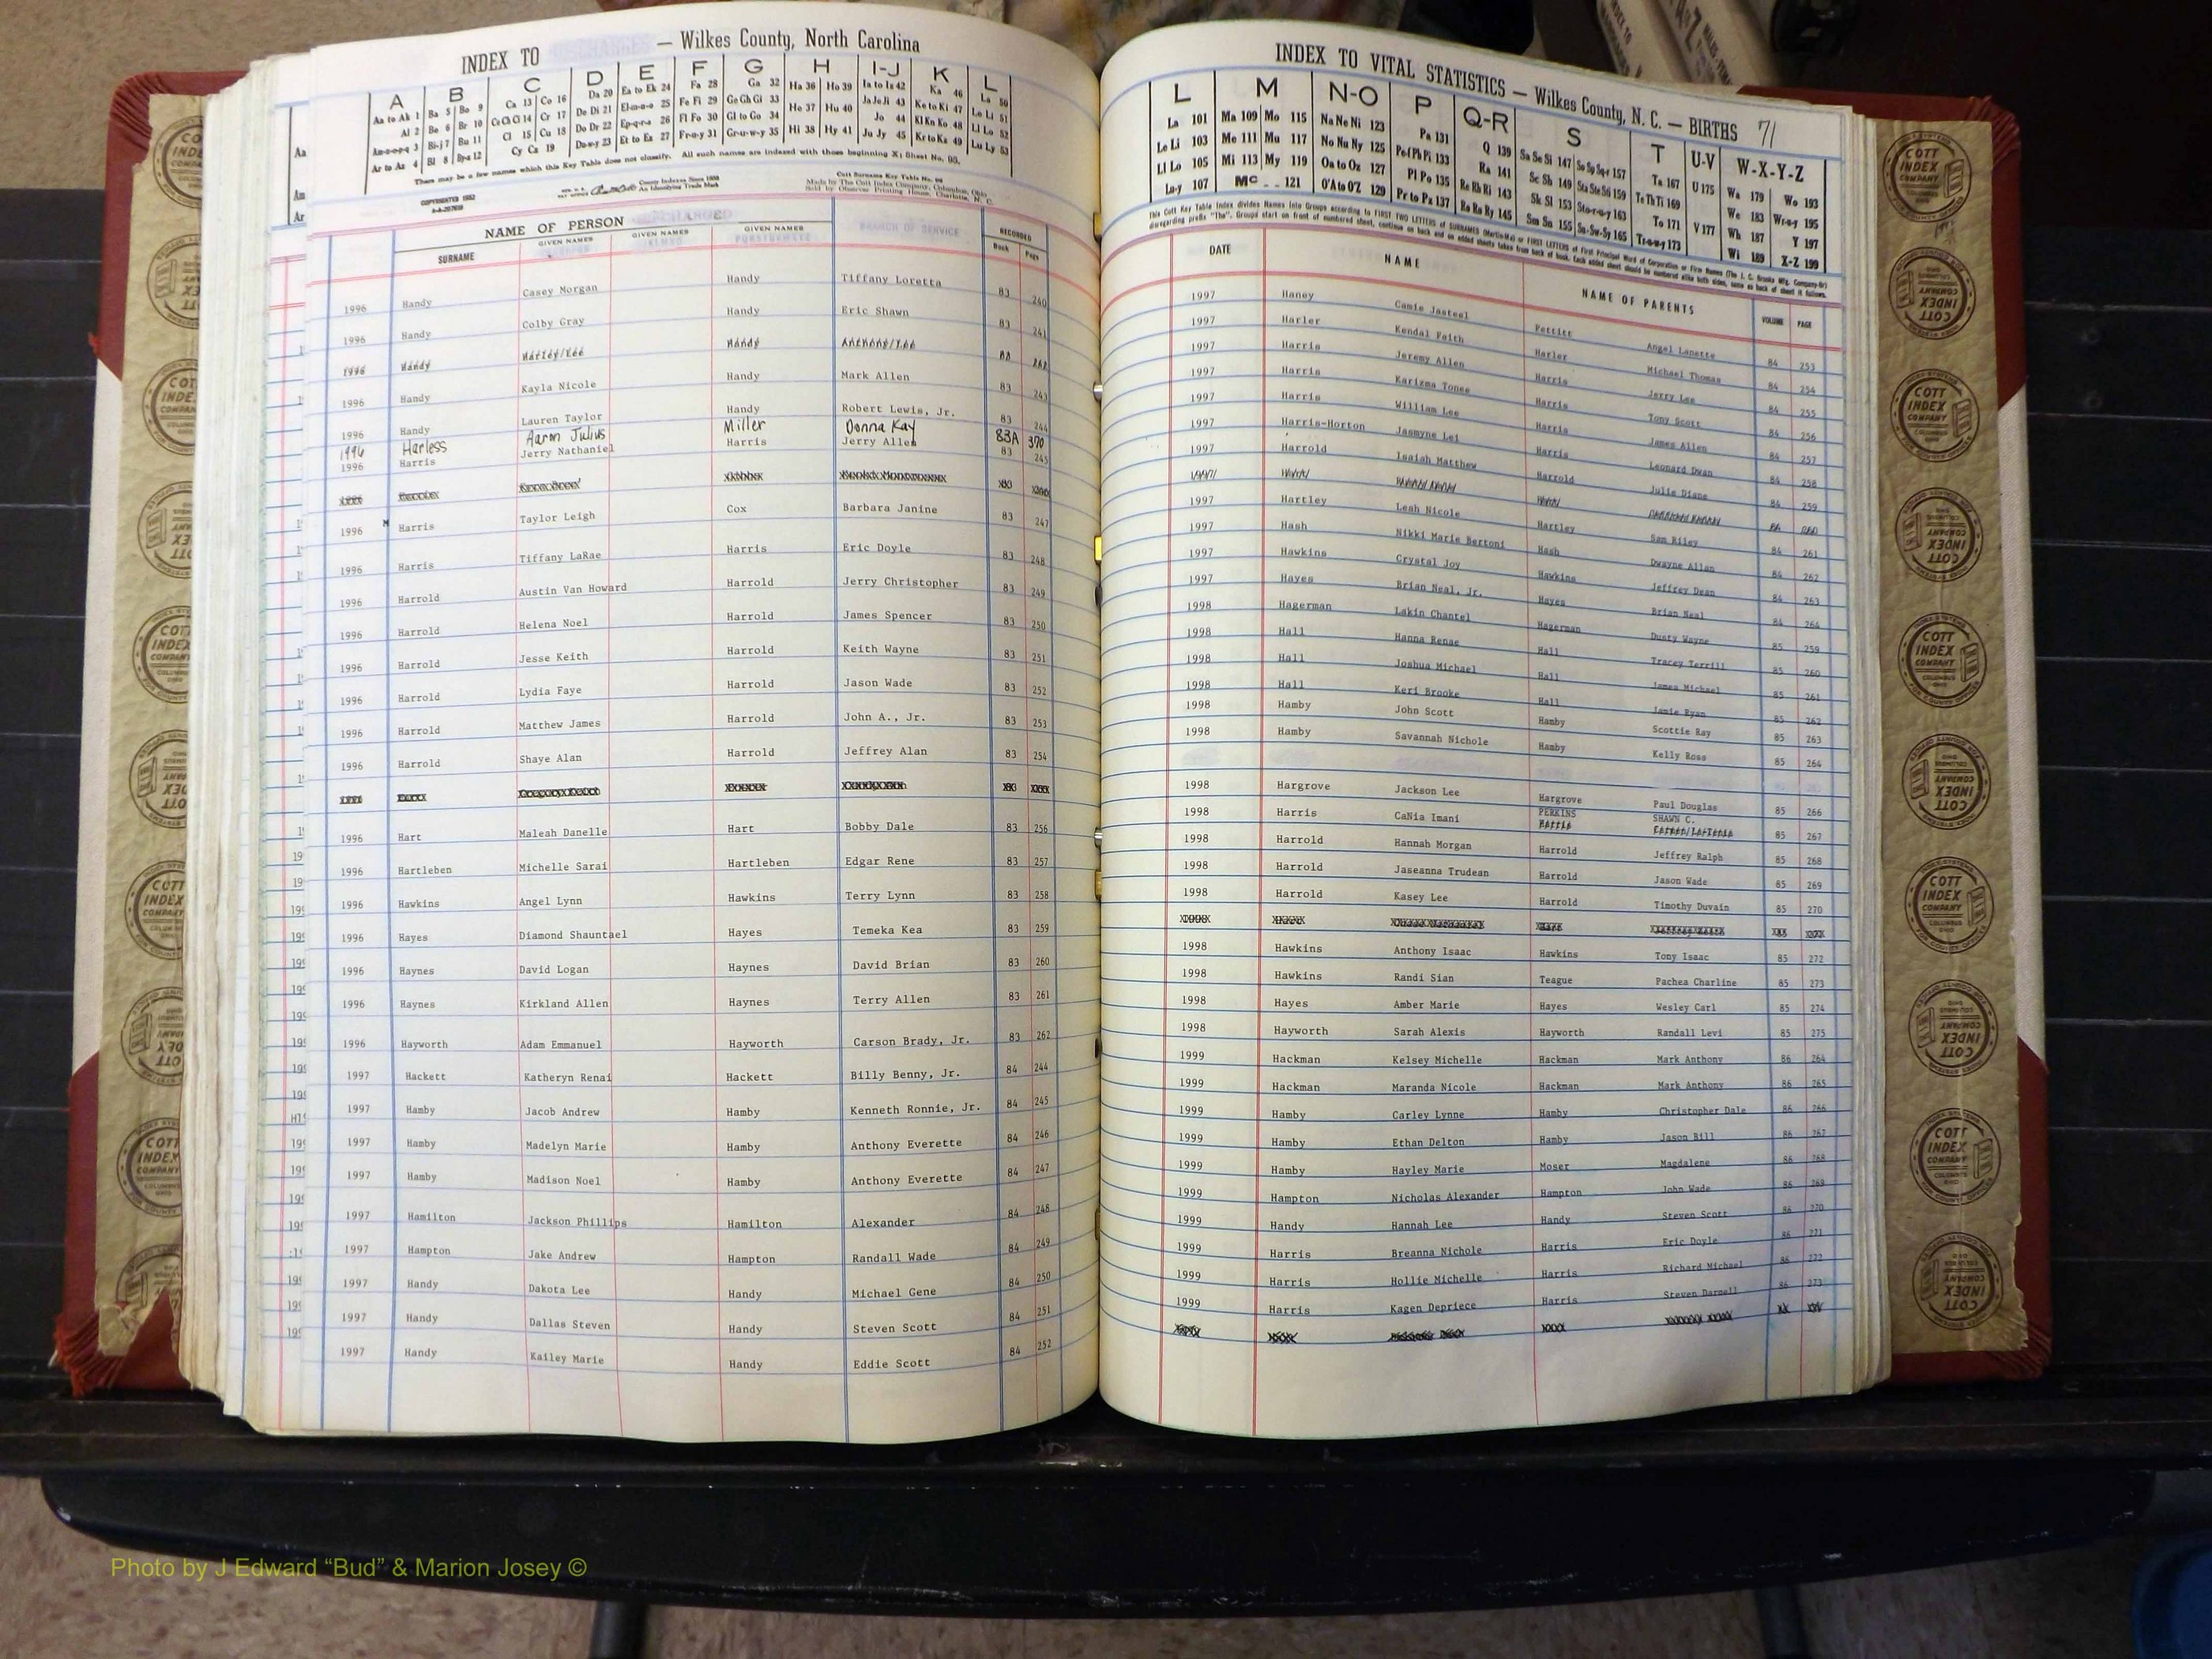 INDEX TO — Wilkes County, North Carolina
A B C D E F G H I-J K L
Aa to Ah 1 Ba 5 Bo 9 Ca 13 Co 16 Da 20 Ea to Ek 24 Fa 28 Ga 32 Ha 36 Ho 39 Ia to Iz 42 Ka 46 La 50
Al 2 Be 6 Br 10 Ce Ch Ci 14 Cr 17 De Di 21 El-m-n-o 25 Fe Fi 29 Ge Gh Gi 33 He 37 Hu 40 Ja Je Ji 43 Ke to Ki 47 Le Li 51
Am-n-o-p-q 3 Bi-j 7 Bu 11 Cl 15 Cu 18 Do Dr 22 Ep-q-r-s 26 Fl Fo 30 Gl to Go 34 Hi 38 Hy 41 Jo 44 Kl Kn Ko 48 Ll Lo 52
Ar to Az 4 Bl 8 By-z 12 Cy Cz 19 Du-w-y 23 Et to Ez 27 Fr-u-y 31 Gr-u-w-y 35 Ju Jy 45 Kr to Kz 49 Lu Ly 53
There may be a few names which this Key Table does not classify. All such names are indexed with those beginning X; Sheet No. 93.
COPYRIGHTED 1952
County Indexes Since 1888
An Identifying Trade Mark
Made by The Cott Index Company, Columbus, Ohio
Sold by Observer Printing House, Charlotte, N. C.
NAME OF PERSON
RECORDED
SURNAME GIVEN NAMES GIVEN NAMES GIVEN NAMES BRANCH OF SERVICE Book Page
1996 Handy Casey Morgan Handy Tiffany Loretta 83 240
1996 Handy Colby Gray Handy Eric Shawn 83 241
1996 Handy Handy
1996 Handy Kayla Nicole Handy Mark Allen 83 243
1996 Handy Lauren Taylor Handy Robert Lewis, Jr. 83 244
1996 Harless Aaron Julius Miller Donna Kay 83A 370
1996 Harris Jerry Nathaniel Harris Jerry Allen 83 245
1996 Harris Taylor Leigh Cox Barbara Janine 83 247
1996 Harris Tiffany LaRae Harris Eric Doyle 83 248
1996 Harrold Austin Van Howard Harrold Jerry Christopher 83 249
1996 Harrold Helena Noel Harrold James Spencer 83 250
1996 Harrold Jesse Keith Harrold Keith Wayne 83 251
1996 Harrold Lydia Faye Harrold Jason Wade 83 252
1996 Harrold Matthew James Harrold John A., Jr. 83 253
1996 Harrold Shaye Alan Harrold Jeffrey Alan 83 254
1996 Hart Maleah Danelle Hart Bobby Dale 83 256
1996 Hartleben Michelle Sarai Hartleben Edgar Rene 83 257
1996 Hawkins Angel Lynn Hawkins Terry Lynn 83 258
1996 Hayes Diamond Shauntael Hayes Temeka Kea 83 259
1996 Haynes David Logan Haynes David Brian 83 260
1996 Haynes Kirkland Allen Haynes Terry Allen 83 261
1996 Hayworth Adam Emmanuel Hayworth Carson Brady, Jr. 83 262
1997 Hackett Katheryn Renai Hackett Billy Benny, Jr. 84 244
1997 Hamby Jacob Andrew Hamby Kenneth Ronnie, Jr. 84 245
1997 Hamby Madelyn Marie Hamby Anthony Everette 84 246
1997 Hamby Madison Noel Hamby Anthony Everette 84 247
1997 Hamilton Jackson Phillips Hamilton Alexander 84 248
1997 Hampton Jake Andrew Hampton Randall Wade 84 249
1997 Handy Dakota Lee Handy Michael Gene 84 250
1997 Handy Dallas Steven Handy Steven Scott 84 251
1997 Handy Kailey Marie Handy Eddie Scott 84 252
INDEX TO VITAL STATISTICS — Wilkes County, N. C. — BIRTHS 71
L M N-O P Q-R S T U-V W-X-Y-Z
La 101 Ma 109 Mo 115 Na Ne Ni 123 Pa 131 Q 139 Sa Se Si 147 So Sp Sq-r 157 Ta 167 U 175 Wa 179 Wo 193
Le Li 103 Me 111 Mu 117 No Nu Ny 125 Pe-f Ph Pi 133 Ra 141 Sc Sh 149 Sta Ste Sti 159 Te Th Ti 169 We 183 Wr-u-y 195
Ll Lo 105 Mi 113 My 119 Oa to Oz 127 Pl Po 135 Re Rh Ri 143 Sk Sl 153 Sto-r-u-y 163 To 171 V 177 Wh 187 Y 197
Lu-y 107 Mc 121 O'A to O'Z 129 Pr to Pz 137 Ro Ru Ry 145 Sm Sn 155 Su-Sw-Sy 165 Tr-u-w-y 173 Wi 189 X-Z 199
DATE NAME NAME OF PARENTS VOLUME PAGE
1997 Haney Camie Jasteel Pettitt Angel Lanette 84 253
1997 Harler Kendal Faith Harler Michael Thomas 84 254
1997 Harris Jeremy Allen Harris Jerry Lee 84 255
1997 Harris Karizma Tonee Harris Tony Scott 84 256
1997 Harris William Lee Harris James Allen 84 257
1997 Harris-Horton Jasmyne Lei Harris Leonard Dwan 84 258
1997 Harrold Isaiah Matthew Harrold Julie Diane 84 259
1997 Hartley Leah Nicole Hartley Sam Riley 84 261
1997 Hash Nikki Marie Bertoni Hash Dwayne Allan 84 262
1997 Hawkins Crystal Joy Hawkins Jeffrey Dean 84 263
1997 Hayes Brian Neal, Jr. Hayes Brian Neal 84 264
1998 Hagerman Lakin Chantel Hagerman Dusty Wayne 85 259
1998 Hall Hanna Renae Hall Tracey Terrill 85 260
1998 Hall Joshua Michael Hall James Michael 85 261
1998 Hall Keri Brooke Hall Jamie Ryan 85 262
1998 Hamby John Scott Hamby Scottie Ray 85 263
1998 Hamby Savannah Nichole Hamby Kelly Ross 85 264
1998 Hargrove Jackson Lee Hargrove Paul Douglas 85 266
1998 Harris CaNia Imani PERKINS SHAWN C. 85 267
1998 Harrold Hannah Morgan Harrold Jeffrey Ralph 85 268
1998 Harrold Jaseanna Trudean Harrold Jason Wade 85 269
1998 Harrold Kasey Lee Harrold Timothy Duvain 85 270
1998 Hawkins Anthony Isaac Hawkins Tony Isaac 85 272
1998 Hawkins Randi Sian Teague Pachea Charline 85 273
1998 Hayes Amber Marie Hayes Wesley Carl 85 274
1998 Hayworth Sarah Alexis Hayworth Randall Levi 85 275
1999 Hackman Kelsey Michelle Hackman Mark Anthony 86 264
1999 Hackman Maranda Nicole Hackman Mark Anthony 86 265
1999 Hamby Carley Lynne Hamby Christopher Dale 86 266
1999 Hamby Ethan Delton Hamby Jason Bill 86 267
1999 Hamby Hayley Marie Moser Magdalene 86 268
1999 Hampton Nicholas Alexander Hampton John Wade 86 269
1999 Handy Hannah Lee Handy Steven Scott 86 270
1999 Harris Breanna Nichole Harris Eric Doyle 86 271
1999 Harris Hollie Michelle Harris Richard Michael 86 272
1999 Harris Kagen Depriece Harris Steven Darnell 86 273
COTT INDEX COMPANY
Photo by J Edward “Bud” & Marion Josey ©